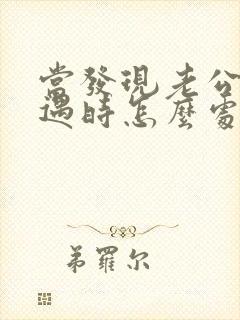 當發現老公
遇時怎麼處
弟羅尔